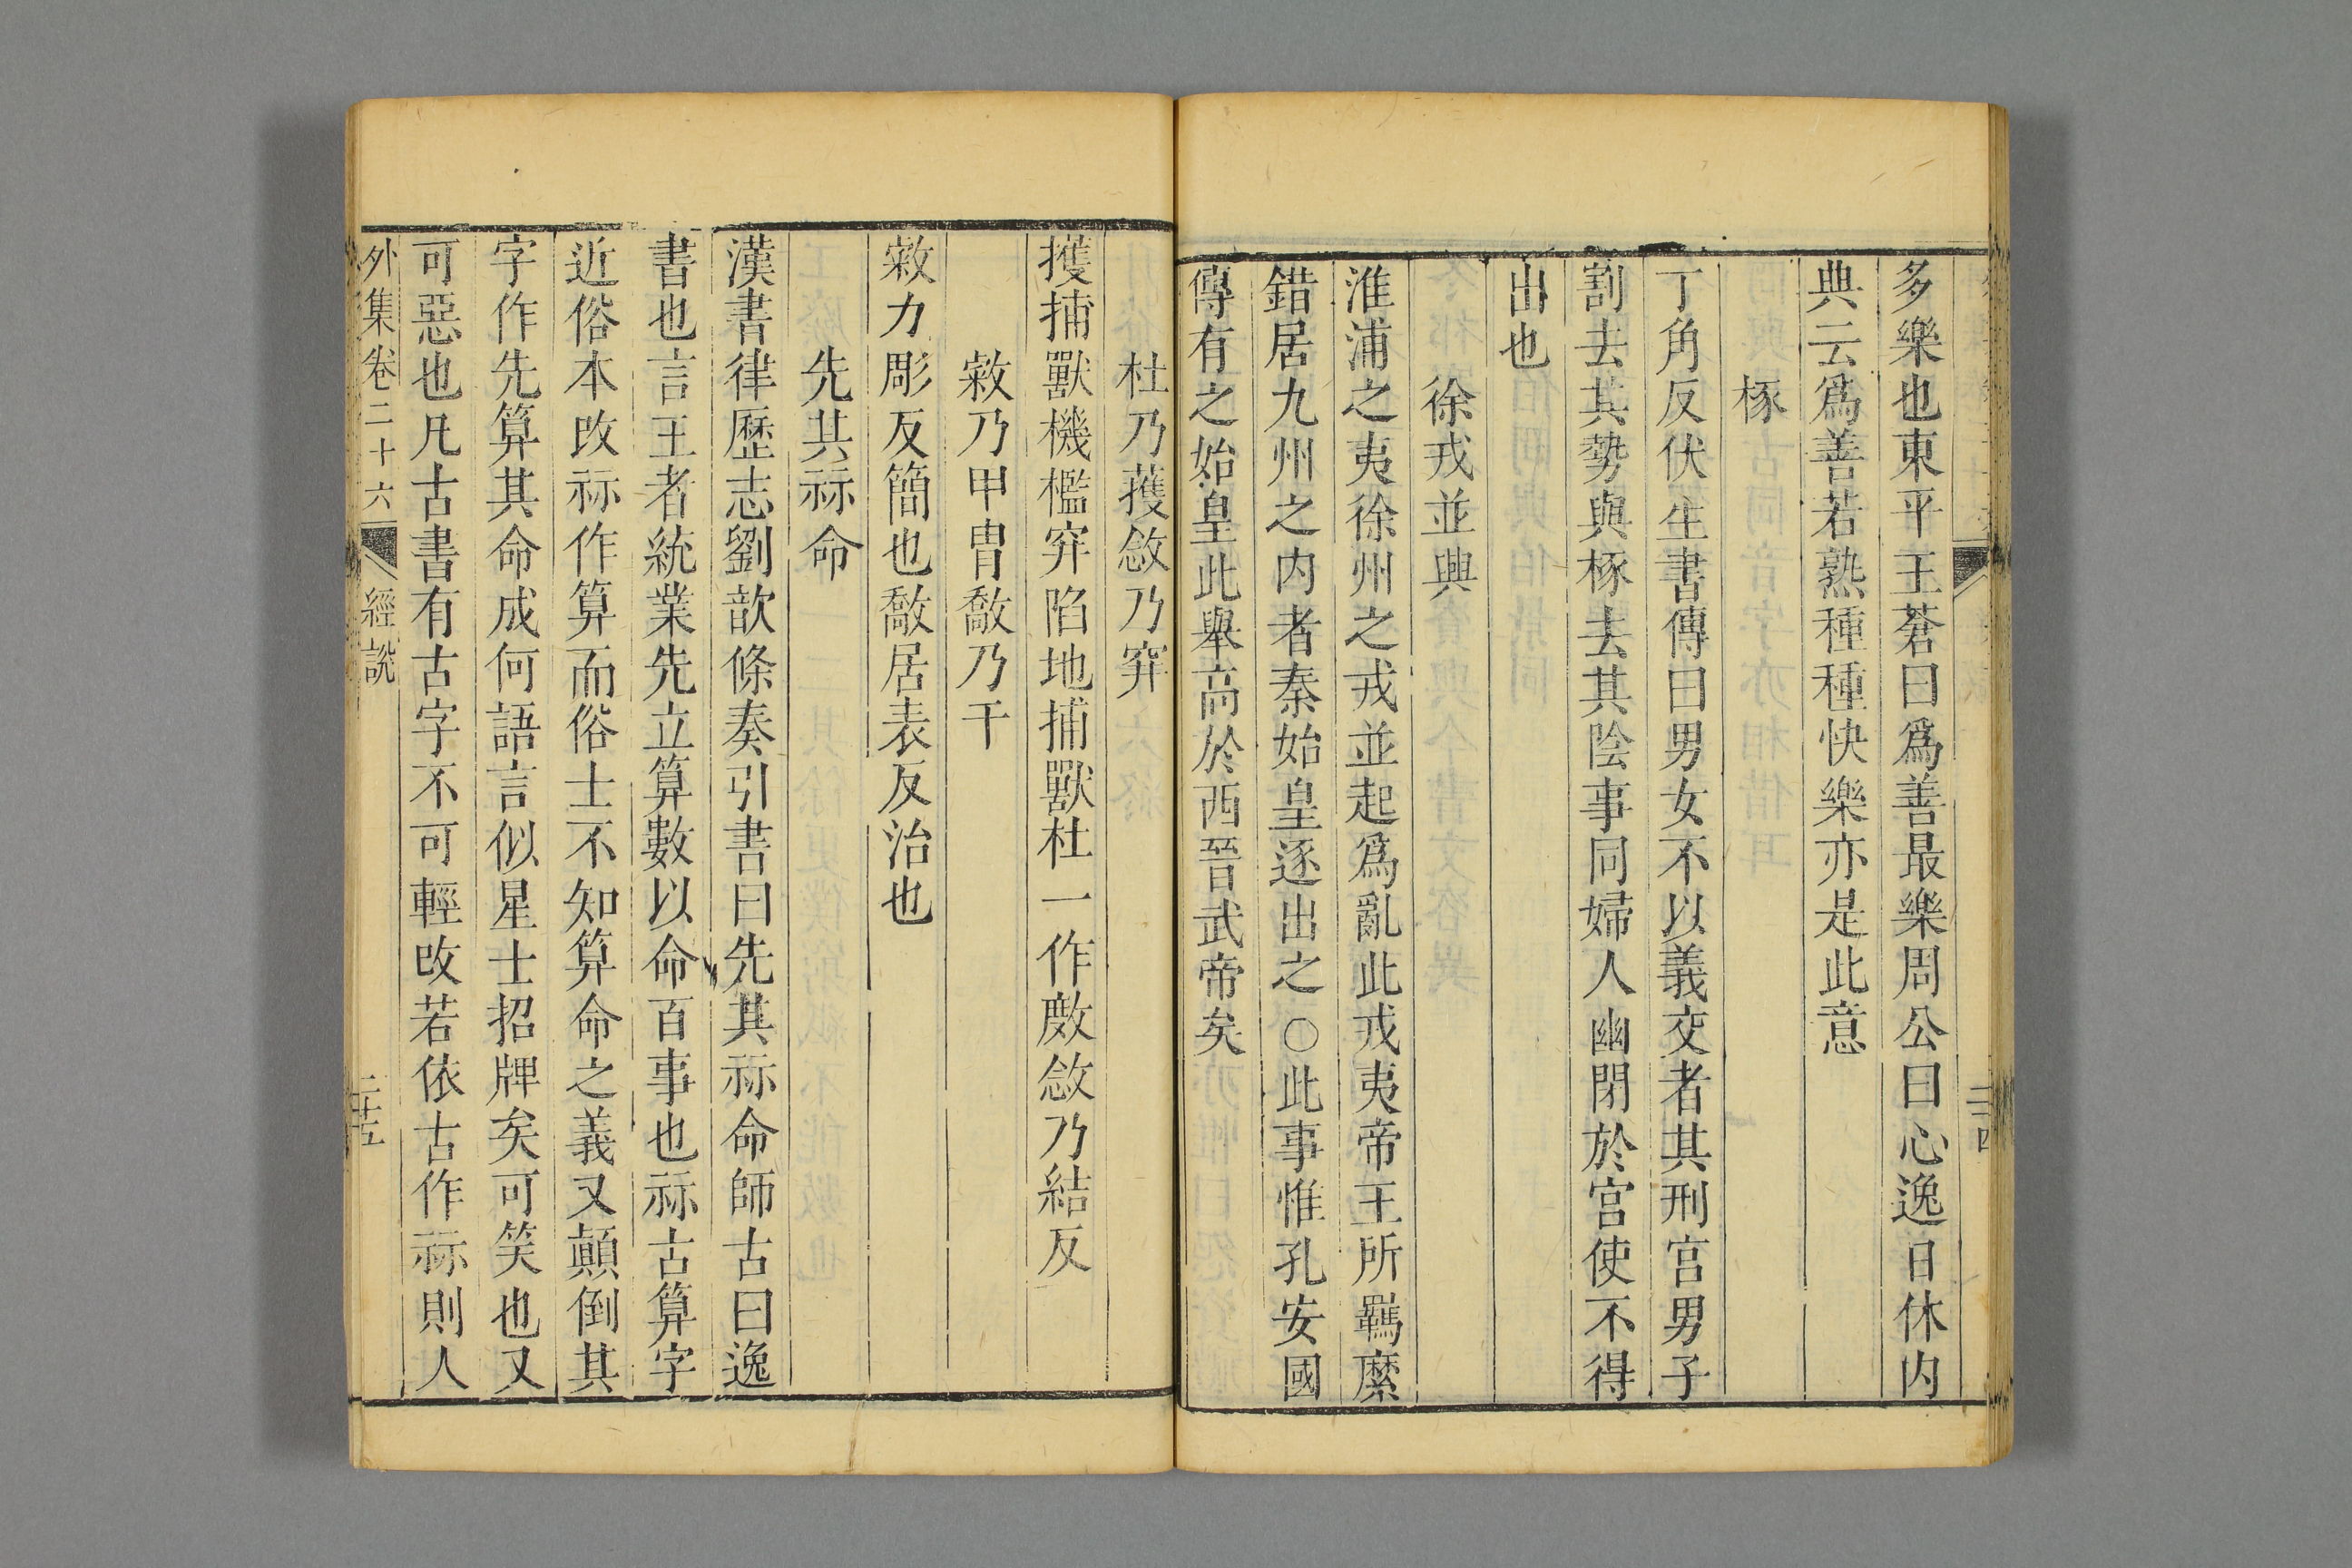 多樂也東平王蒼曰爲善最樂周公曰心逸日休内
典云爲善若熟種種快樂亦是此意
椓
丁角反伏生書傳曰男女不以義交者其刑宫男子
割去其勢與椓去其陰事同婦人幽閉於宮使不得
出也
徐戎並興
淮浦之夷徐州之戎並起爲亂此戎夷帝王所羈縻
錯居九州之内者秦始皇逐出之○此事惟孔安國
傳有之始皇此舉高於西晉武帝矣
杜乃擭敜乃穽
擭捕獸機檻穽陷地捕獸杜一作敷敜乃結反
敹乃甲胄敽乃干
敹力彫反簡也敽居表反治也
先其祘命
漢書律歷志劉歆條奏引書曰先其祘命師古曰逸
書也言王者統業先立算數以命百事也祘古算字
近俗本改祘作算而俗士不知算命之義又顛倒其
字作先算其命成何語言似星士招牌矣可笑也又
可惡也凡古書有古字不可輕改若依古作祘則人
外集卷二十六 經説 二十五